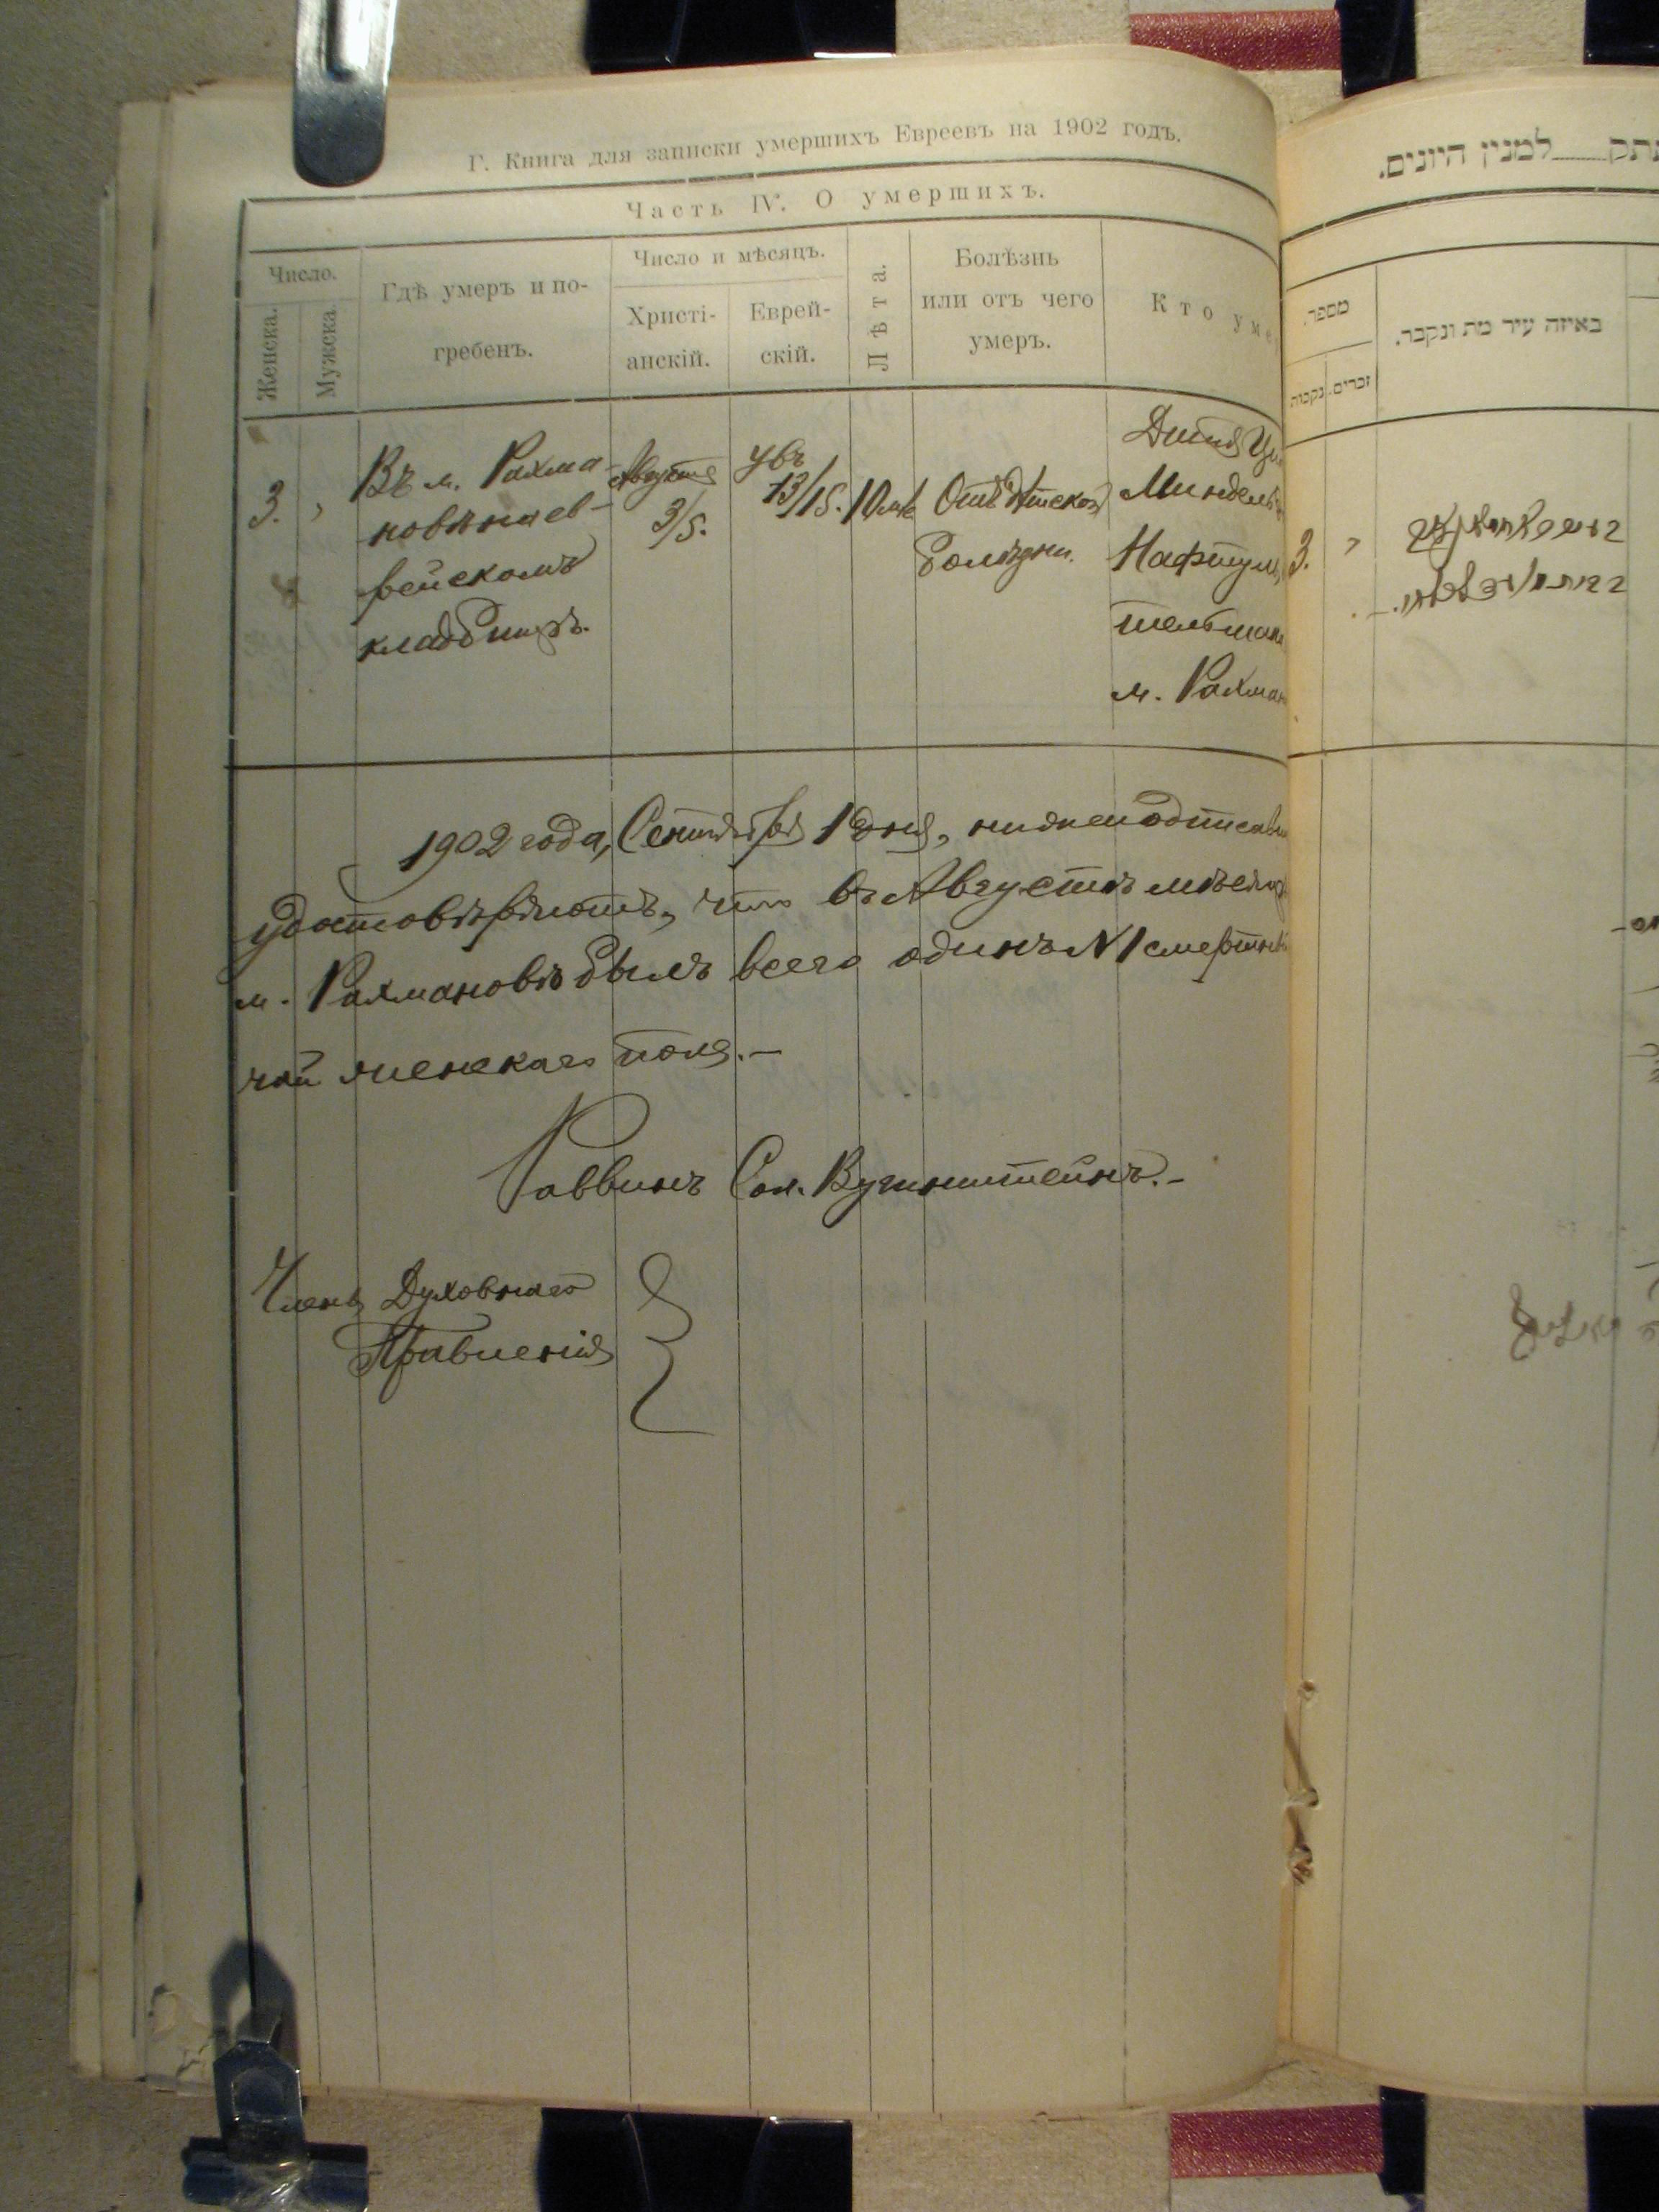 Г. Книга для записки умершихъ Евреевъ на 1902 годъ.
Часть IV. О умершихъ.
Число.
Женска.
Мужска.
Гдѣ умеръ и по-
гребенъ.
Число и мѣсяцъ.
Христі-
анскій.
Еврей-
скій.
Лѣта.
Болѣзнь
или отъ чего
умеръ.
Кто уме
3.
Въ м. Рахма-
новѣ на ев-
рейскомъ
кладбищѣ.
Августа
3/5.
13/15.
10
Отъ дѣтской
болѣзни.
Дитя
Миндель
Нафтул
тельман
м. Рахман
1902 года, Сентября 1 дня, нижеподписав
удостовѣряютъ, что въ Августѣ мѣся
м. Рахмановѣ былъ всего одинъ N 1 смертн
чай женскаго пола.-
Раввинъ Сол. Вугнштейнъ.-
Члены Духовнаго
Правленія
למנין היונים.
מספר.
זכרים.
נקבות
באיזה עיר מת ונקבר.
3.